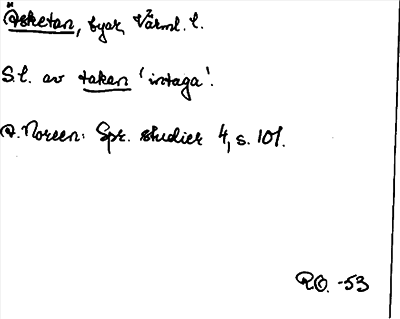 Ösketan, byar, Värml. l.
S.l. av takan 'intaga'.
A. Noreen: Spr. studier 4, s. 101.
RO. -53